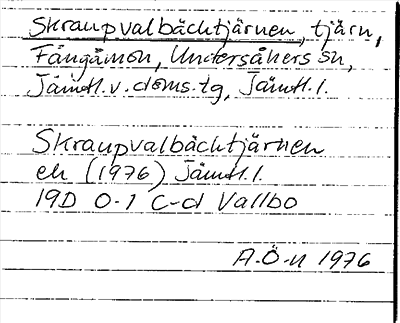 Skraupvalbächtjärnen, tjärn,
Fångåmon, Undersåkers sn,
Jämtl.v.doms.tg, Jämtl.l.
Skraupvalbächtjärnen
ek (1976) Jämtl.l.
19D 0-1 c-d Vallbo
A.Ö-n 1976